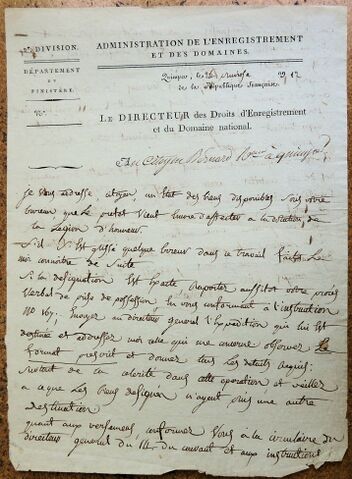 2e DIVISION.
DÉPARTEMENT
ET
FINISTÈRE.
N°
ADMINISTRATION DE L'ENREGISTREMENT
ET DES DOMAINES.
Quimper, le
de la République française.
LE DIRECTEUR des Droits d'Enregistrement
et du Domaine national.
Au Citoyen Bernard à quimper
Je vous adresse, citoyen, un état des biens disponibles sous votre
bureau que le prefet vient encore d'affecter à la dotation de
la Legion d'honneur.
S'il s'est glissé quelque erreur dans ce travail faites le
moi connoitre de suite
Si la designation est exacte rapporter aussitot votre procès
verbal de prise de possession, en vous conformant à l'instruction
N° 167; envoyer au directeur general l'expedition qui lui est
destinée et adressez moi celle qui me concerne observez le
format prescrit et donnez tous les details requis:
mettez de la celerité dans cette operation et veillez
a ce que les biens designés n'ayent pas une autre
destination
quant aux versemens, conformez vous à la circulaire du
directeur general du 14 du courant et aux instructions